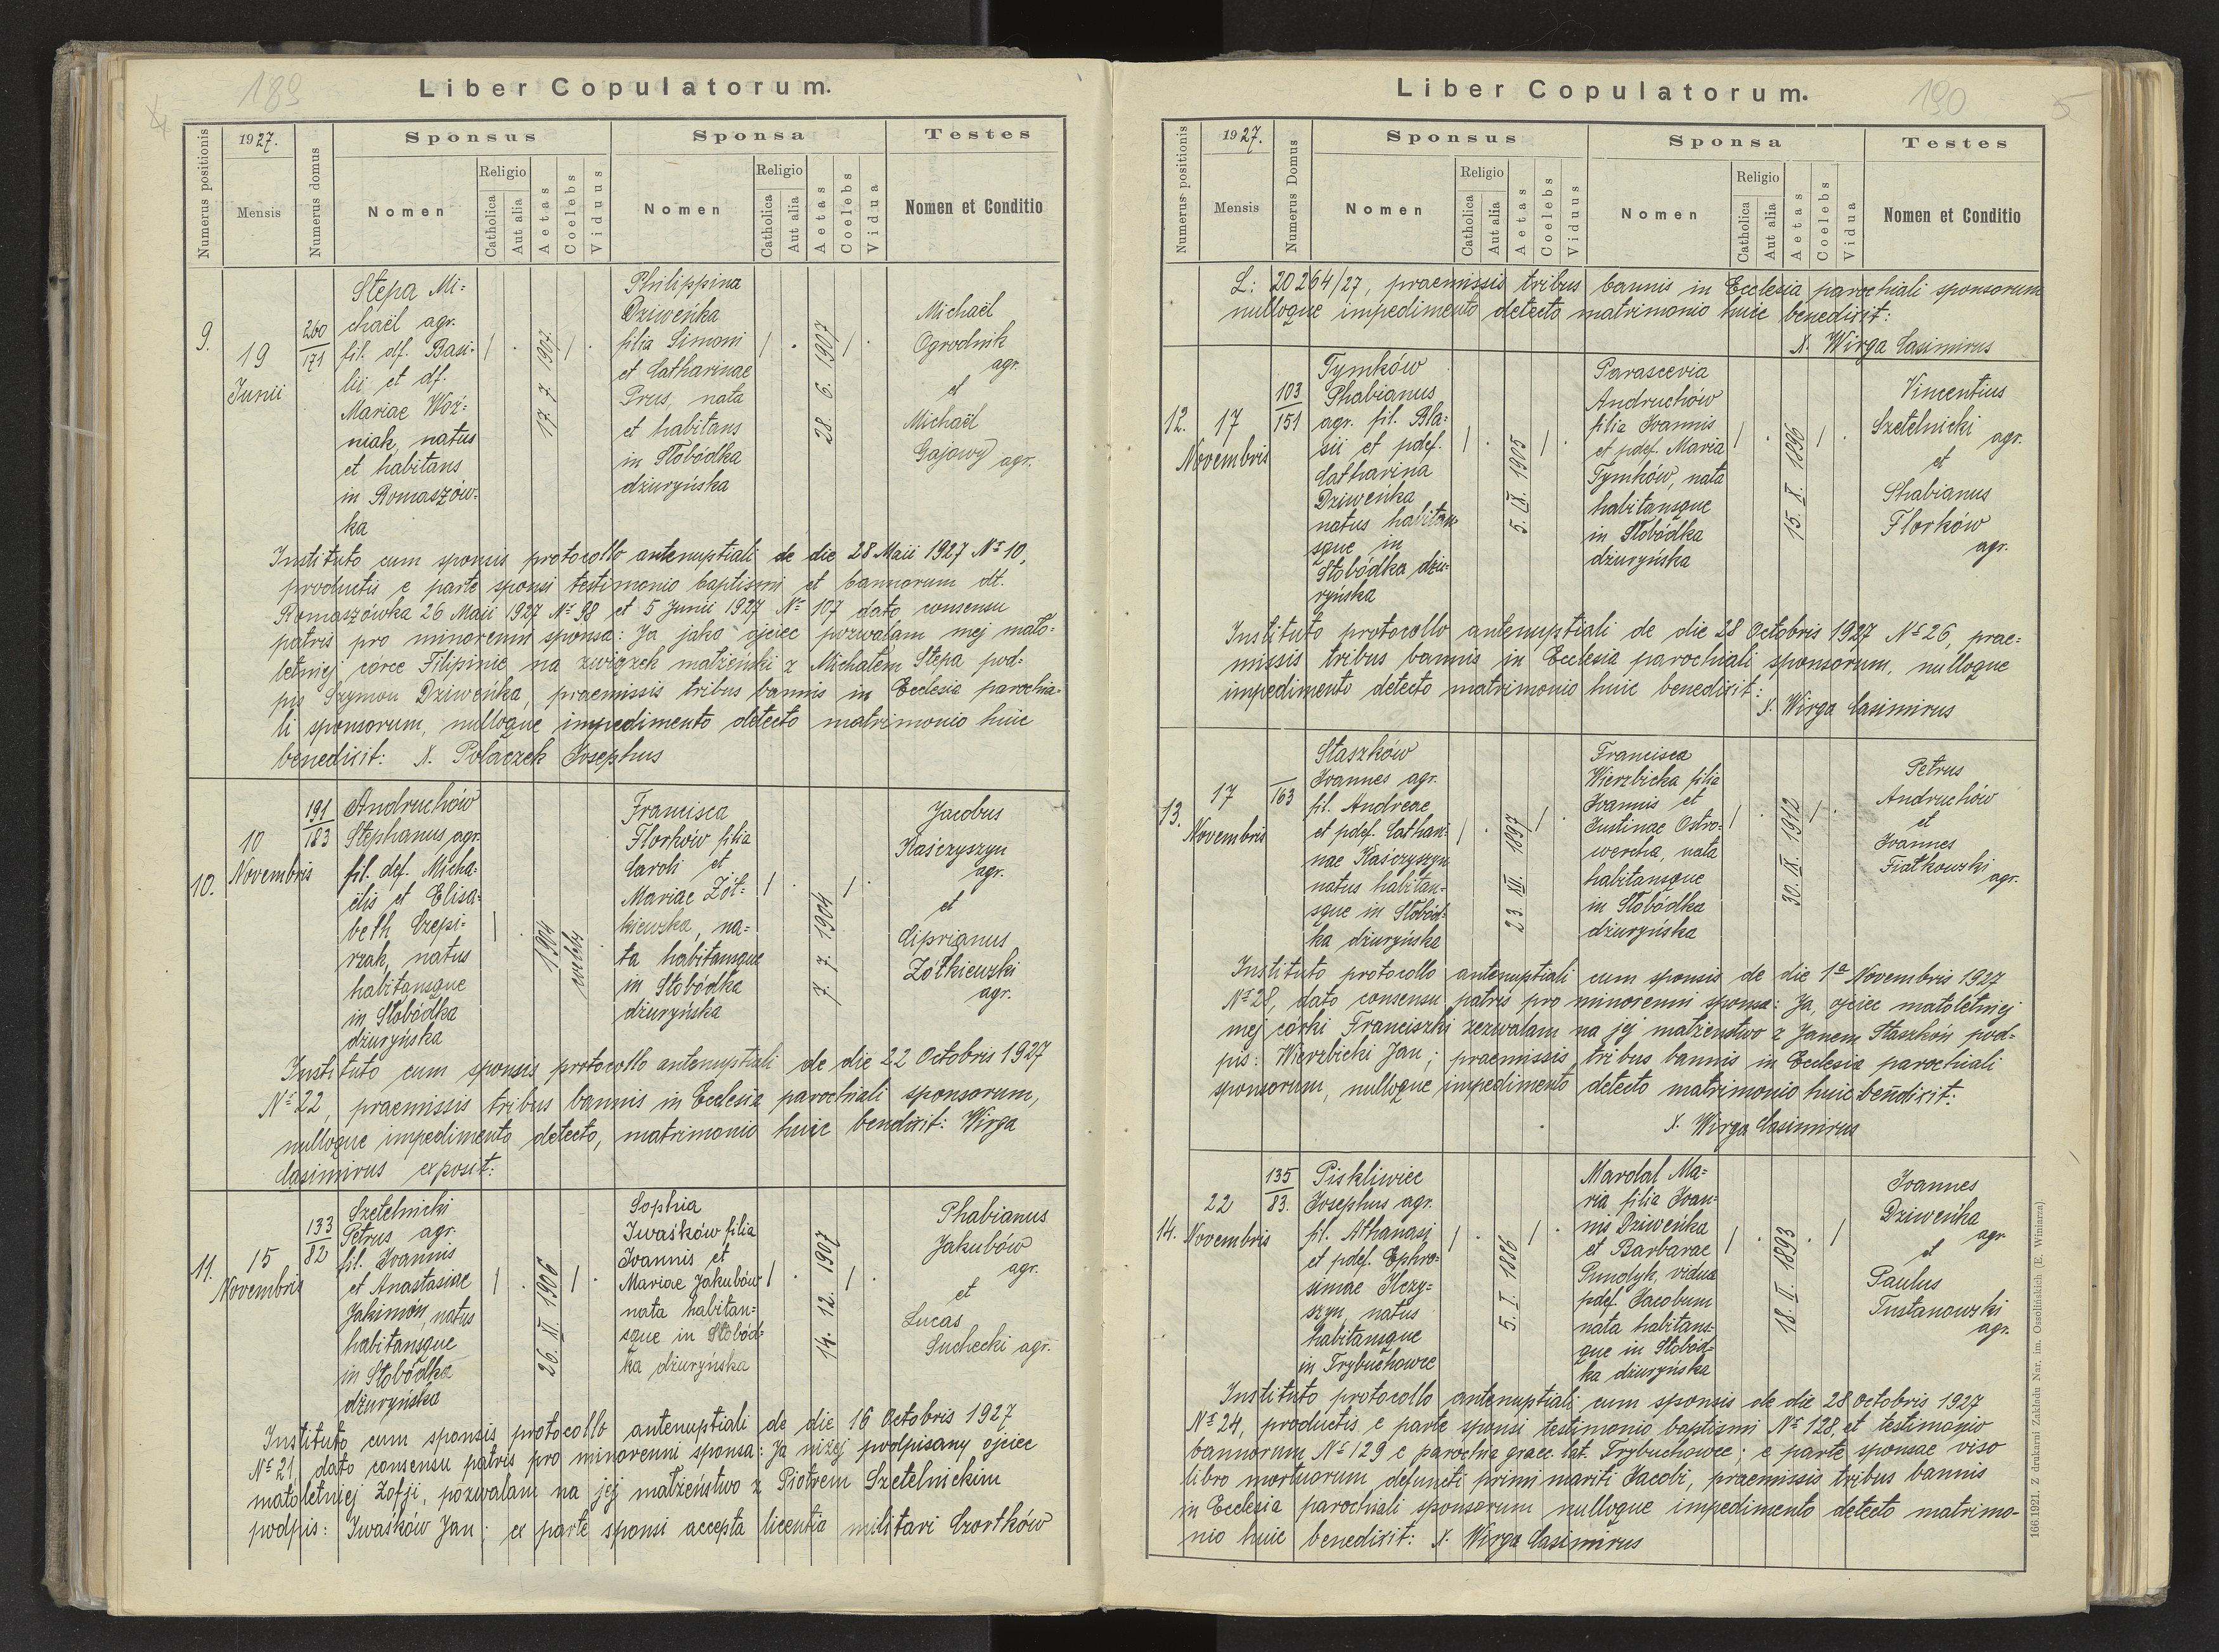 189
Liber Copulatorum.
Numerus positionis
1927.
Mensis
Numerus domus
Sponsus
Nomen
Religio
Catholica
Aut alia
Aetas
Coelebs
Viduus
Sponsa
Nomen
Religio
Catholica
Aut alia
Aetas
Coelebs
Vidua
Testes
Nomen et Conditio
9.
19
Junii
260
171
Stepa Mi=
chaël agr.
fil. df. Basi-
lii et df.
Mariae Woź=
niak, natus
et habitans
in Romaszów-
ka
17. 7. 1907
Philippina
Dziweńka
filia Simoni
et Catharinae
Prus, nata
et habitans
in Słobódka
dżuryńska
28. 6. 1907
Michaël
Ogrodnik
agr.
et
Michaël
Gajowy agr.
Instituto cum sponsis protocollo antenuptiali de die 28 Maii 1927 No 10,
productis e parte sponsi testimonio baptismi et bannorum dt.
Romaszówka 26 Maii 1927 No 98 et 5 Junii 1927 No 107 dato consensu
patris pro minorenni sponsa: Ja jako ojciec pozwalam mej mało=
letniej córce Filipinie na związek małżeński z Michałem Stepa pod=
pis Szymon Dziweńka, praemissis tribus bannis in Ecclesia parochia-
li sponsorum, nulloque impedimento detecto matrimonio huic
benedixit: X. Polaczek Josephus
10.
10
Novembris
191
183
Andruchów
Stephanus agr.
fil. def. Micha=
ëlis et Elisa=
beth Czepi=
rzak, natus
habitansque
in Słobódka
dżuryńska
1904
coelebs
Francisca
Florków filia
Caroli et
Mariae Żół=
kiewska, na=
ta habitansque
in Słobódka
dżuryńska
7. 7. 1904
Jacobus
Kaśczyszyn
agr.
et
Ciprianus
Żółkiewski
agr.
Instituto cum sponsis protocollo antenuptiali de die 22 Octobris 1927
No 22, praemissis tribus bannis in Ecclesia parochiali sponsorum,
nulloque impedimento detecto, matrimonio huic bendixit: Wirga
Casimirus exposit:
11.
15
Novembris
133
82
Szetelnicki
Petrus agr.
fil. Joannis
et Anastasiae
Jakimów, natus
habitansque
in Słobódka
dżuryńska
26. XI. 1906
Sophia
Iwaśków filia
Joannis et
Mariae Jakubów
nata habitan=
sque in Słobód=
ka dżuryńska
14. 12. 1907
Phabianus
Jakubów
agr.
et
Lucas
Suchecki agr.
Instituto cum sponsis protocollo antenuptiali de die 16 Octobris 1927
No 21, dato consensu patris pro minorenni sponsa: Ja niżej podpisany ojciec
małoletniej Zofji, pozwalam na jej małżeństwo z Piotrem Szetelnickim
podpis: Iwaśków Jan; ex parte sponsi accepta licentia militari Czortków
190
5
Liber Copulatorum.
Numerus positionis
1927.
Mensis
Numerus Domus
Sponsus
Nomen
Religio
Catholica
Aut alia
Aetas
Coelebs
Viduus
Sponsa
Nomen
Religio
Catholica
Aut alia
Aetas
Coelebs
Vidua
Testes
Nomen et Conditio
L: 20264/27, praemissis tribus bannis in Ecclesia parochiali sponsorum
nulloque impedimento detecto matrimonio huic benedixit:
X. Wirga Casimirus
12.
17
Novembris
103
151
Tymków
Phabianus
agr. fil. Bla=
sii et pdef.
Catharina
Dziweńka
natus habitan-
sque in
Słobódka dżu-
ryńska
5. IX. 1905
Parascevia
Andruchów
filia Joannis
et pdef. Maria
Tymków, nata
habitansque
in Słobódka
dżuryńska
15. X. 1896
Vincentius
Szetelnicki
agr.
et
Phabianus
Florków
agr.
Instituto protocollo antenuptiali de die 28 Octobris 1927 No 26, prae=
missis tribus bannis in Ecclesia parochiali sponsorum, nulloque
impedimento detecto matrimonio huic benedixit:
X. Wirga Casimirus
13.
17
Novembris
163
Staszków
Joannes agr.
fil. Andreae
et pdef. Cathari=
nae Kaśczyszyn
natus habitan-
sque in Słobód-
ka dżuryńska
23. XII. 1897
Francisca
Wierzbicka filia
Joannis et
Justinae Ostro=
wercha, nata
habitansque
in Słobódka
dżuryńska
30. IX. 1912
Petrus
Andruchów
et
Joannes
Fiałkowski
agr.
Instituto protocollo antenuptiali cum sponsis de die 1a Novembris 1927
No 28, dato consensu patris pro minorenni sponsa: Ja, ojciec małoletniej
mej córki Franciszki zezwalam na jej małżeństwo z Janem Staszków pod=
pis: Wierzbicki Jan; praemissis tribus bannis in Ecclesia parochiali
sponsorum, nulloque impedimento detecto matrimonio huic beñdixit:
X. Wirga Casimirus
14.
22
Novembris
135
83.
Piskliwiec
Josephus agr.
fil. Athanasi
et pdef. Ephro-
simae Hczy=
szyn, natus
habitansque
in Trybuchowce
5. I. 1886
Mardal Ma=
ria filia Joan=
nis Dziweńka
et Barbarae
Pundyk, vidua
pdef. Jacobum
nata habitans=
que in Słobód=
ka dżuryńska
18. II. 1893
Joannes
Dziweńka
agr.
et
Paulus
Tustanowski
agr.
Instituto protocollo antenuptiali cum sponsis de die 28 octobris 1927
No 24, productis e parte sponsi testimonio baptismi No 128, et testimonio
bannorum No 129 e parochia graec. cat. Trybuchowce; e parte sponsae viso
libro mortuorum defuncti primi mariti Jacobi, praemissis tribus bannis
in Ecclesia parochiali sponsorum nulloque impedimento detecto matrimo-
nio huic benedixit: X. Wirga Casimirus
166.1921. Z drukarni Zakładu Nar. im. Ossolińskich (E. Winiarza)